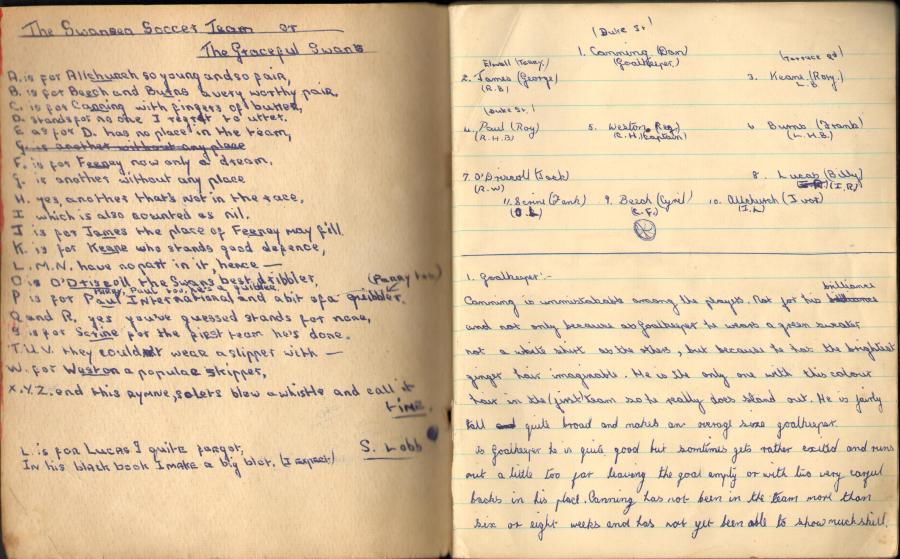 The Swansea Soccer Team or
The Graceful Swans
A. is for Allchurch so young and so pair,
B. is for Beech and Burns a very worthy pair,
C. is for Canning with fingers of butter,
D. stands for no one I regret to utter.
E as for D. has no place in the team,
G. is another without any place
F. is for Feeney now only a dream,
G. is another without any place
H. yes, another that's not in the race,
I which is also counted as nil.
J is for James the place of Feeney may fill.
K. is for Keane who stands good defence,
L. M. N. have no part in it, hence —
O is O'Driscoll the Swans best dribbler,
Parry, Paul too, he's a quibler (Parry too)
P is for Paul International and a bit of a quibbler.
Q and R, yes you've guessed stands for none,
S is for Scrine for the first team he's done.
T.U.V. they couldn't wear a slipper with —
W. for Weston a popular skipper,
X.Y.Z. end this rymne, so lets blow a whistle and call it
time.
L is for Lucas I quite forgot,
In his black book I make a big blot. (I expect)
S. Lobb
(Duke St.)
1. Canning (Dan)
(Goalkeeper.)
Elwell (Terry.)
2. James (George)
(R.B)
(Terrace Rd)
3. Keane (Rory.)
L.B
(Duke St.)
4. Paul (Roy)
(R.H.B)
5. Weston. Reg)
(C.H. Captain)
6. Burns (Frank)
(L.H.B)
7. O'Driscoll (Jack)
(R.W)
8. Lucas (Billy)
(I.R)
11. Scrine (Frank)
9. Beech (Cyril)
(C.F.)
10. Allchurch (Ivor)
(I.L)
1. Goalkeeper:-
Canning is unmistakable among the players. Not for his brilliance
and not only because as Goalkeeper he wears a green sweater
not a white shirt as the others, but because he has the brightest
ginger hair imaginable. He is the only one with this colour
hair in the (first) team so he really does stand out. He is fairly
tall quite broad and makes an average size goalkeeper.
As Goalkeeper he is quite good but somtimes gets rather excited and runs
out a little too far leaving the goal empty or with two very careful
backs in his place. Canning has not been in the team more than
six or eight weeks and has not yet been able to show much skill.